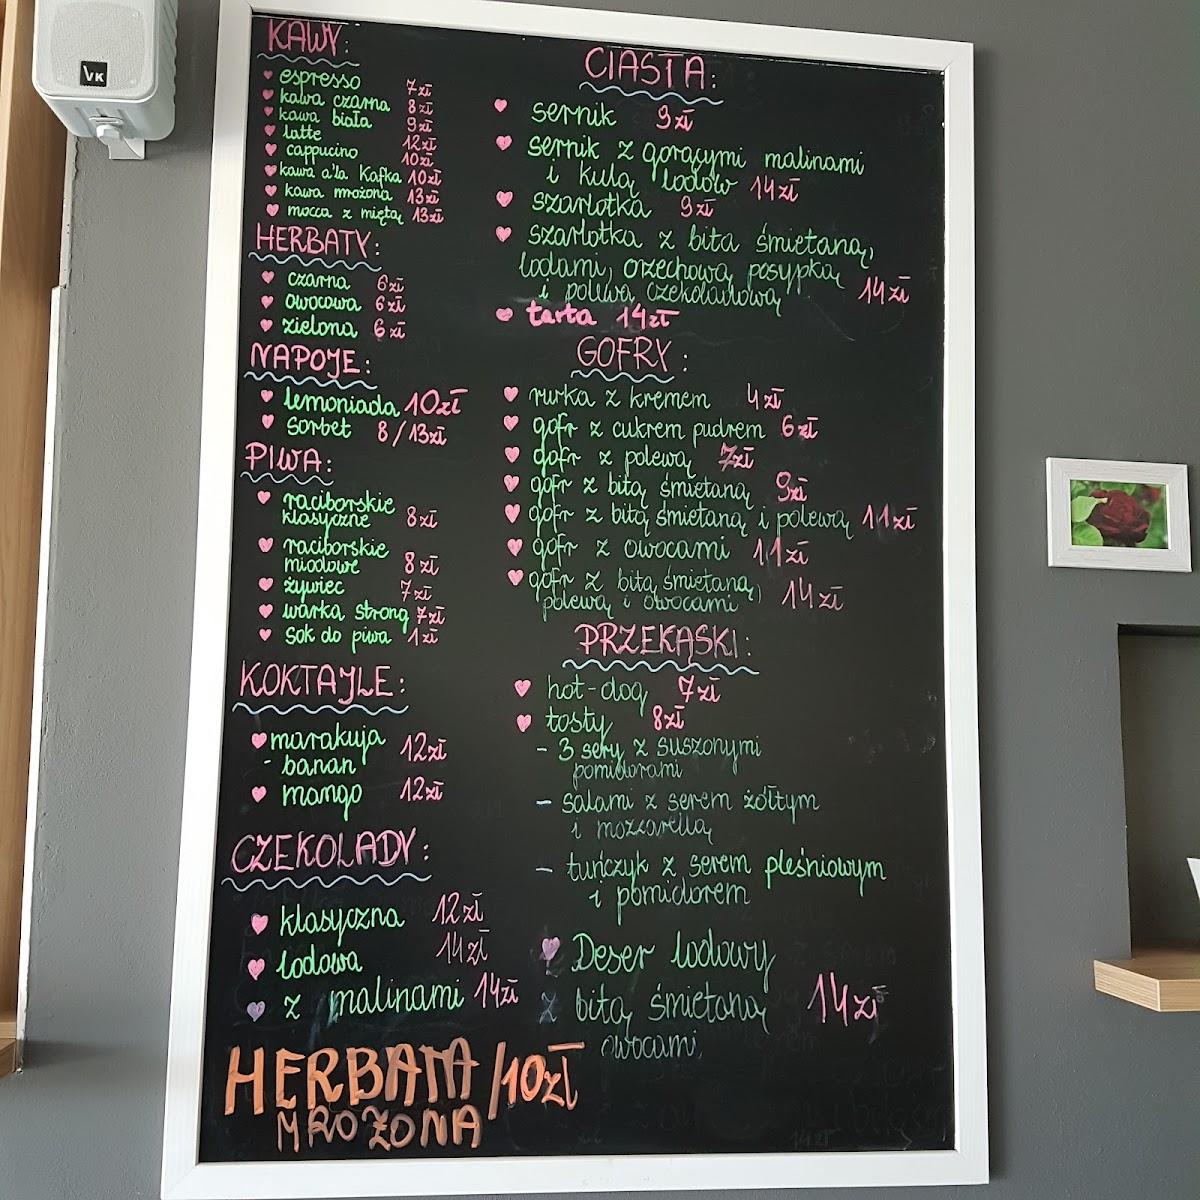 VK
KAWY:
espresso 7zł
kawa czarna 8zł
kawa biała 9zł
latte 12zł
cappucino 10zł
kawa a'la Kafka 10zł
kawa mrożona 13zł
mocca z miętą 13zł
HERBATY:
czarna 6zł
owocowa 6zł
zielona 6zł
NAPOJE:
lemoniada 10zł
sorbet 8/13zł
PIWA:
raciborskie
klasyczne 8zł
raciborskie
miodowe 8zł
żywiec 7zł
warka strong 7zł
sok do piwa 1zł
KOKTAJLE:
marakuja
- banan 12zł
mango 12zł
CZEKOLADY:
klasyczna 12zł
lodowa 14zł
z malinami 14zł
HERBATA /10zł
MROŻONA
CIASTA:
sernik 9zł
sernik z gorącymi malinami
i kulą lodów 14zł
szarlotka 9zł
szarlotka z bitą śmietaną,
lodami, orzechową posypką
i polewą czekoladową 14zł
tarta 14zł
GOFRY:
rurka z kremem 4zł
gofr z cukrem pudrem 6zł
gofr z polewą 7zł
gofr z bitą śmietaną 9zł
gofr z bitą śmietaną i polewą 11zł
gofr z owocami 11zł
gofr z bitą śmietaną,
polewą i owocami 14zł
PRZEKĄSKI:
hot-dog 7zł
tosty 8zł
- 3 sery z suszonymi
pomidorami
- salami z serem żółtym
i mozzarellą
- tuńczyk z serem pleśniowym
i pomidorem
Deser lodowy
z bitą śmietaną 14zł
owocami,